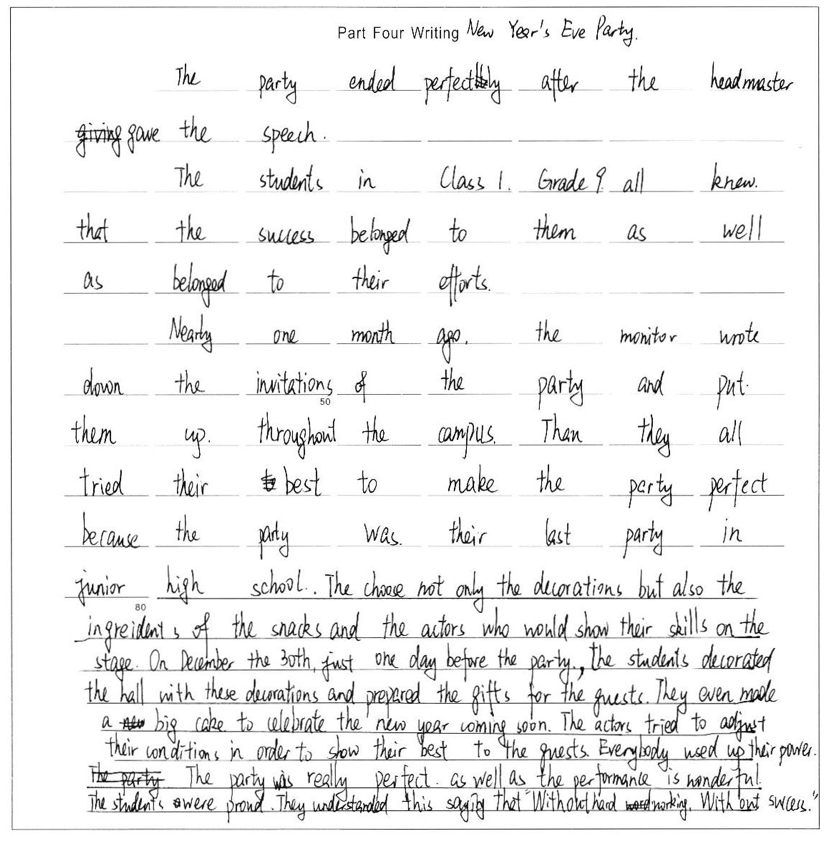 Part Four Writing New Year's Eve Party.
The party ended perfectly after the headmaster
giving gave the speech.
The students in Class 1. Grade 9. all knew.
that the success belonged to them as well
as belonged to their efforts.
Nearly one month ago. the monitor wrote
down the invitations of the party and put
50
them up. throughout the campus. Than they all
tried their best to make the party perfect
because the party was. their last party in
junior high school.. The choose not only the decorations but also the
80
ingreidents of the snacks and the actors who would show their skills on the
stage. On December the 30th, just one day before the party., the students decorated
the hall with these decorations and prepared the gifts for the guests. They even made
a big cake to celebrate the new year coming soon. The actors tried to adjust
their conditions in order to show their best to the guests. Everybody used up their power.
The party The party was really perfect. as well as the performance is wonderful
The students were proud. They understanded this saying that "Without hard working. Without success."